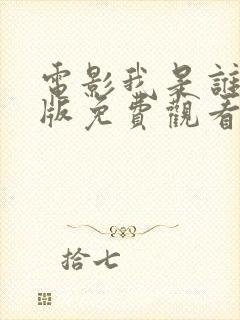 電影我是誰
版免費觀看
拾七